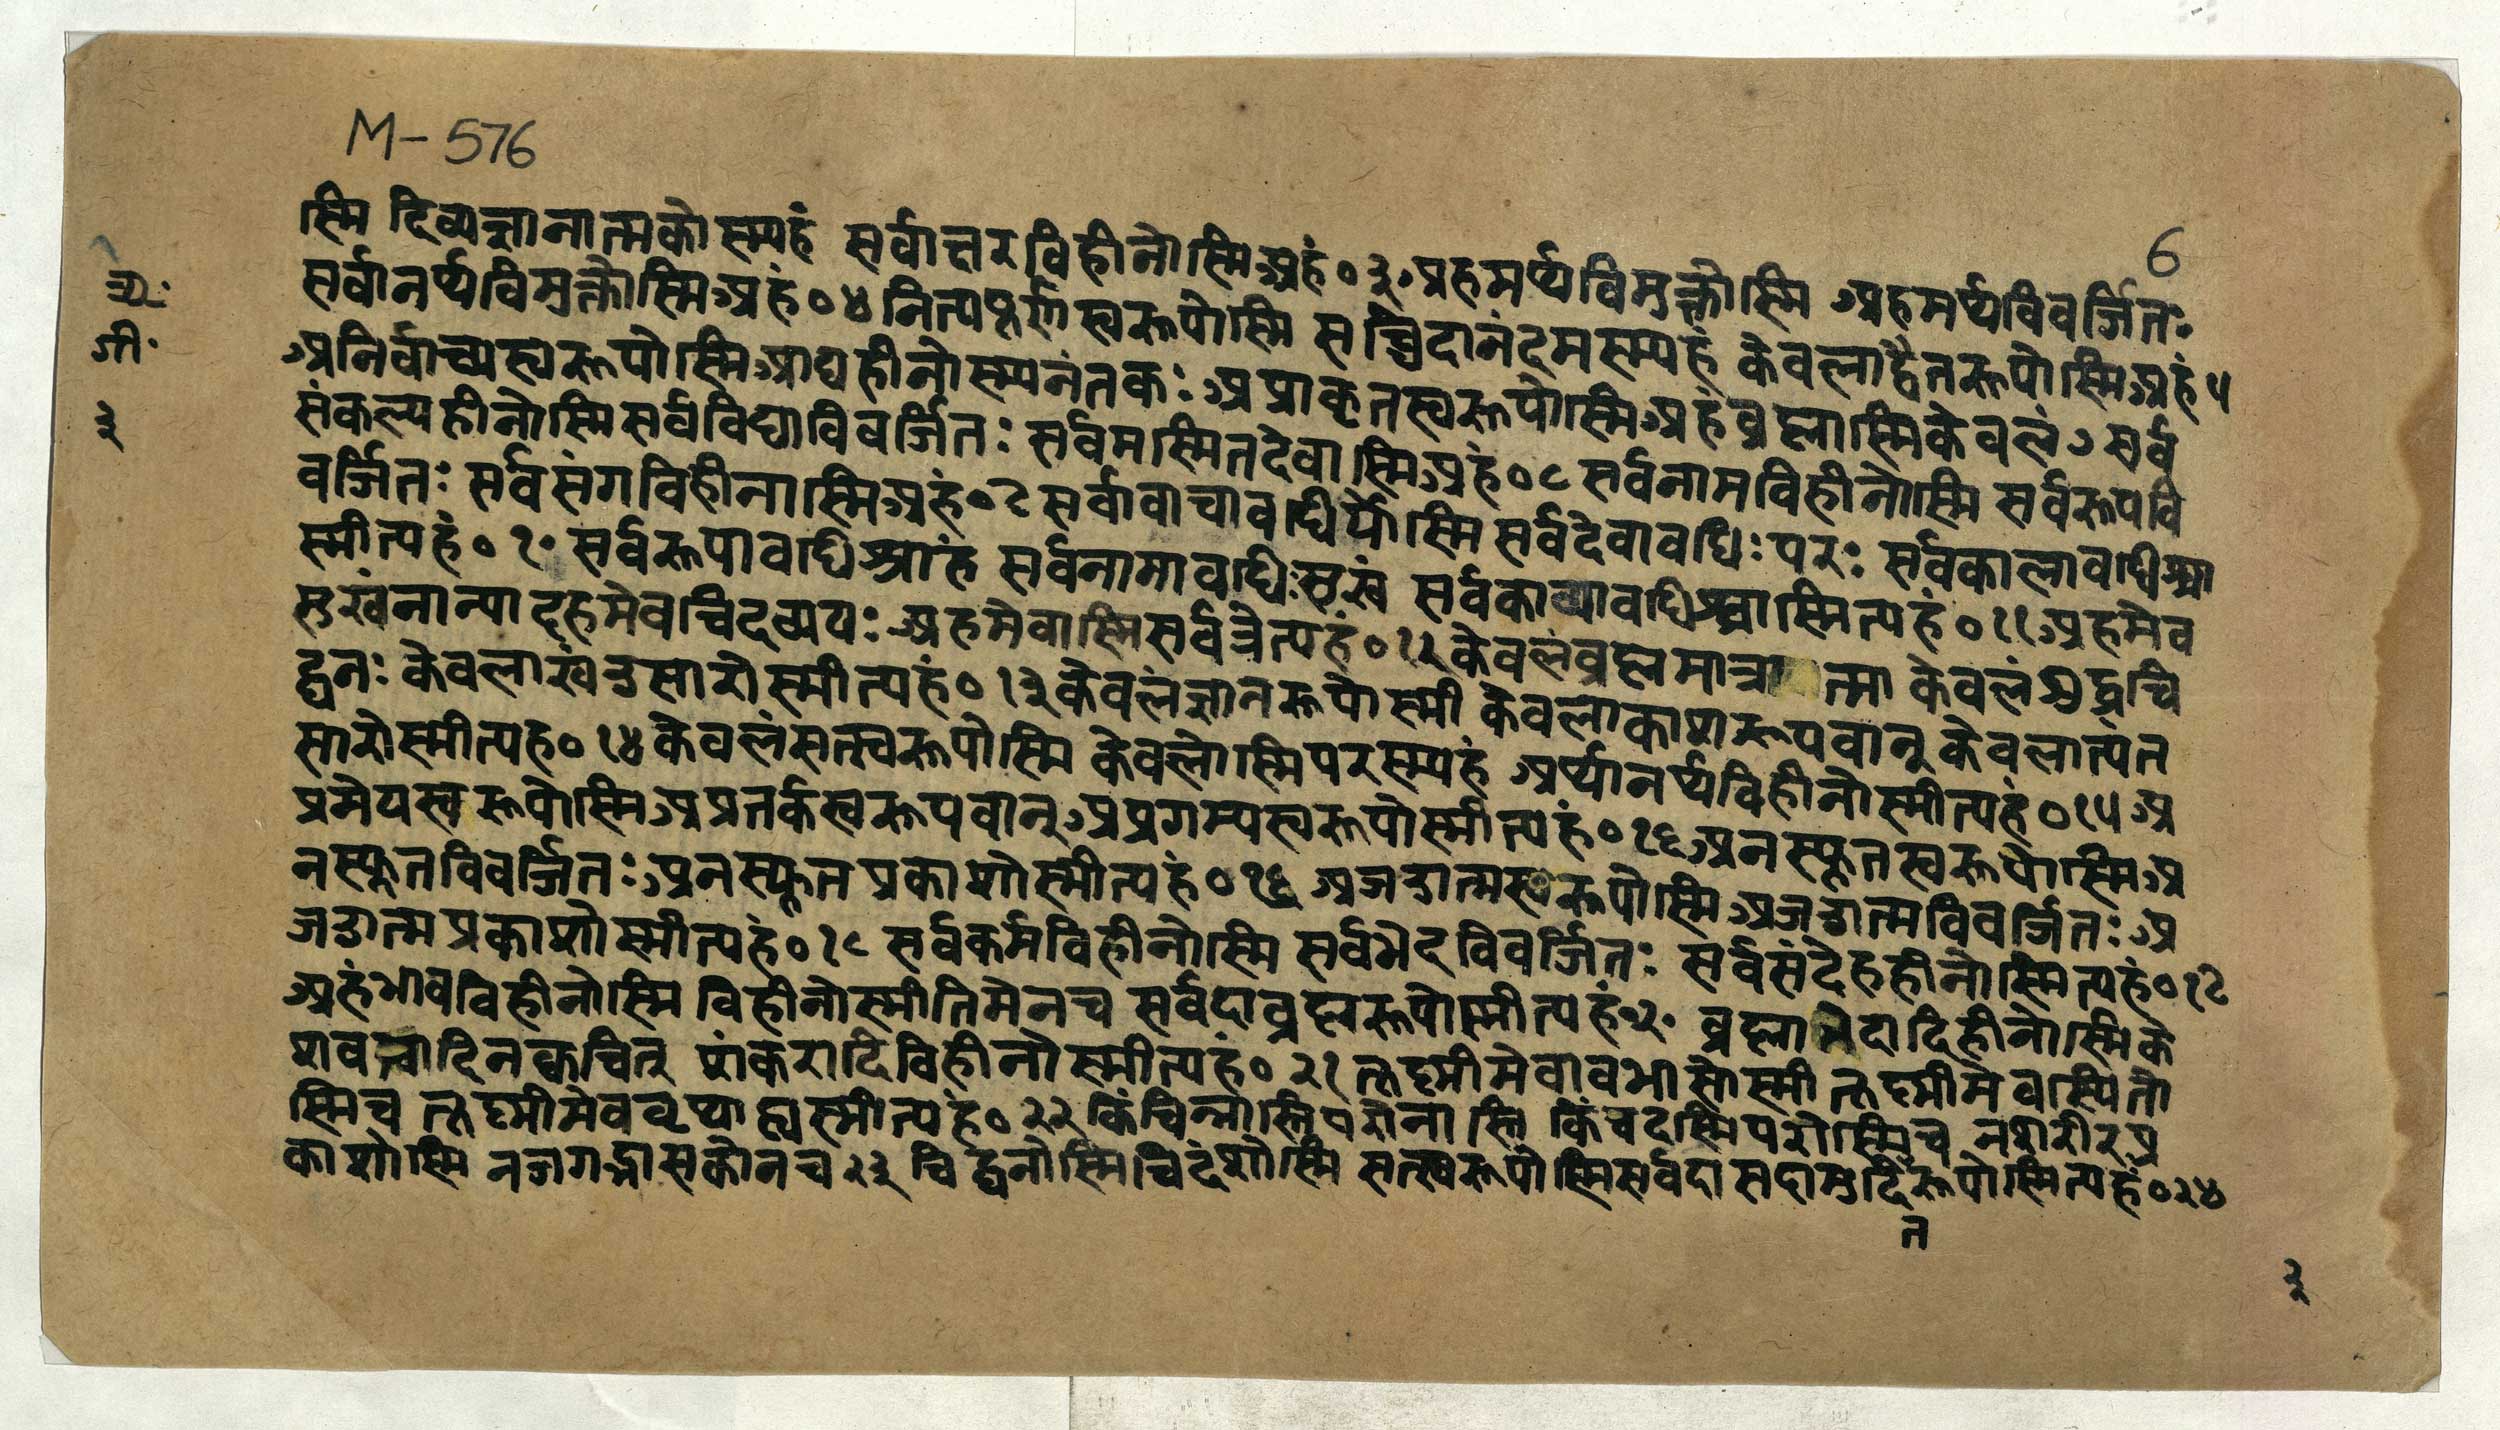 M-576
6
अ॰
गी॰
३
स्मि दिव्यज्ञानात्मकोस्म्यहं सर्वोत्तरविहीनोस्मिअहं॰ ३ अहमर्थविमुक्तोस्मि अहमर्थविवर्जितः
सर्वानर्थविमुक्तोस्मिअहं॰ ४ नित्यपूर्णस्वरूपोस्मि सच्चिदानंदमस्म्यहं केवलाद्वैतरूपोस्मिअहं ५
अनिर्वाच्यस्वरूपोस्मिआद्यहीनोस्म्यनंतकः अप्राकृतस्वरूपोस्मिअहंब्रह्मास्मिकेवलं ७ सर्व
संकल्पहीनोस्मि सर्वविद्याविवर्जितः सर्वमस्मितदेवास्मिअहं॰ ८ सर्वनामविहीनोस्मि सर्वरूपवि
वर्जितः सर्वसंगविहीनास्मिअहं॰ ९ सर्वावाचावधिर्योस्मि सर्वदेवावधिः परः सर्वकालावधिश्चा
स्मीत्यहं॰ १० सर्वरूपावधिश्चाहं सर्वनामावधिःसुखं सर्वकाव्यावधिश्चास्मित्यहं॰ ११ अहमेव
सुखंनान्यादहमेवचिदव्ययः अहमेवास्मिसर्वत्रेत्यहं॰ १२ केवलंब्रह्ममात्रात्मा केवलंशुद्धचि
द्घनः केवलाखंडसारोस्मीत्यहं॰ १३ केवलंज्ञानरूपोस्मी केवलाकाशरूपवान् केवलात्यंत
सारोस्मीत्यह॰ १४ केवलंसत्स्वरूपोस्मि केवलोस्मिपरस्म्यहं अर्थानर्थविहीनोस्मीत्यहं॰ १५ अ
प्रमेयस्वरूपोस्मिअप्रतर्कस्वरूपवान् अप्रगम्यस्वरूपोस्मीत्यहं॰ १६ अनस्फूतस्वरूपोस्मिअ
नस्फूतविवर्जितः अनस्फूतप्रकाशोस्मीत्यहं॰ १७ अजडात्मस्वरूपोस्मि अजडात्मविवर्जितः अ
जडात्मप्रकाशोस्मीत्यहं॰ १८ सर्वकर्मविहीनोस्मि सर्वभेदविवर्जितः सर्वसंदेहहीनोस्मित्यहं॰ १९
अहंभावविहीनोस्मि विहीनोस्मीतिमेनच सर्वदाब्रह्मरूपोस्मीत्यहं॰ २० ब्रह्माभेदादिहीनोस्मिके
शवत्वादिनक्वचित् शंकरादिविहीनोस्मीत्यहं॰ २१ तूष्मीमेवावभासोस्मी तूष्मीमेवस्थितो
स्मिच तूष्मीमेववृथाह्यस्मीत्यहं॰ २२ किंचिन्नास्तिपरोनास्ति किंचदस्मिपरोस्मिच नशरीरप्र
काशोस्मि नजगद्भासकोनच २३ चिद्घनोस्मिचिदंशोस्मि सत्स्वरूपोस्मिसर्वदा सदामुदिरूपोस्मित्यहं॰ २४
त
३